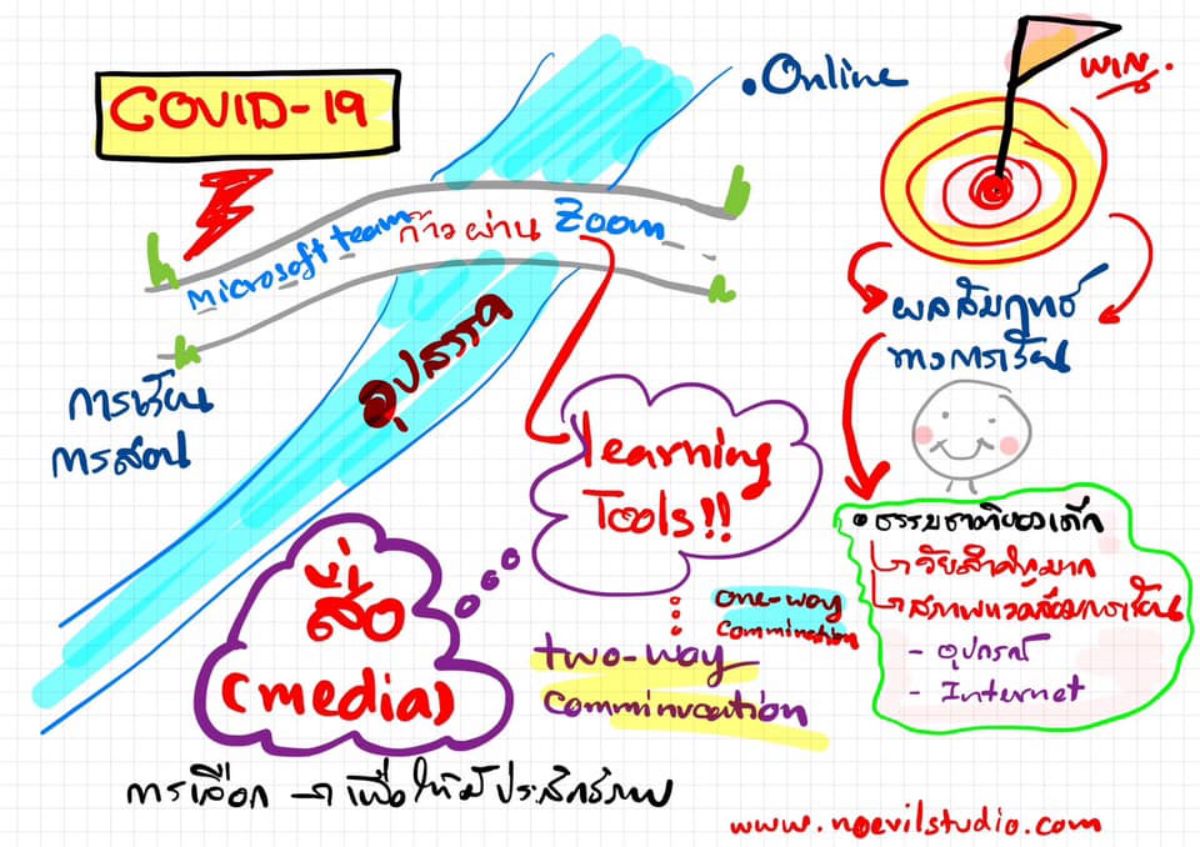 COVID-19
Online
Microsoft team ก้าวผ่าน Zoom
อุปสรรค
ผลสัมฤทธิ์
ทางการเรียน
การเรียน
การสอน
learning
Tools!!
สื่อ
(media)
one-way
commination
two-way
comminucation
ธรรมชาติของเด็ก
วัยสำคัญมาก
สภาพแวดล้อมการเรียน
- อุปกรณ์
- Internet
การเลือก → เพื่อให้มีประสิทธิภาพ
www.noevilstudio.com